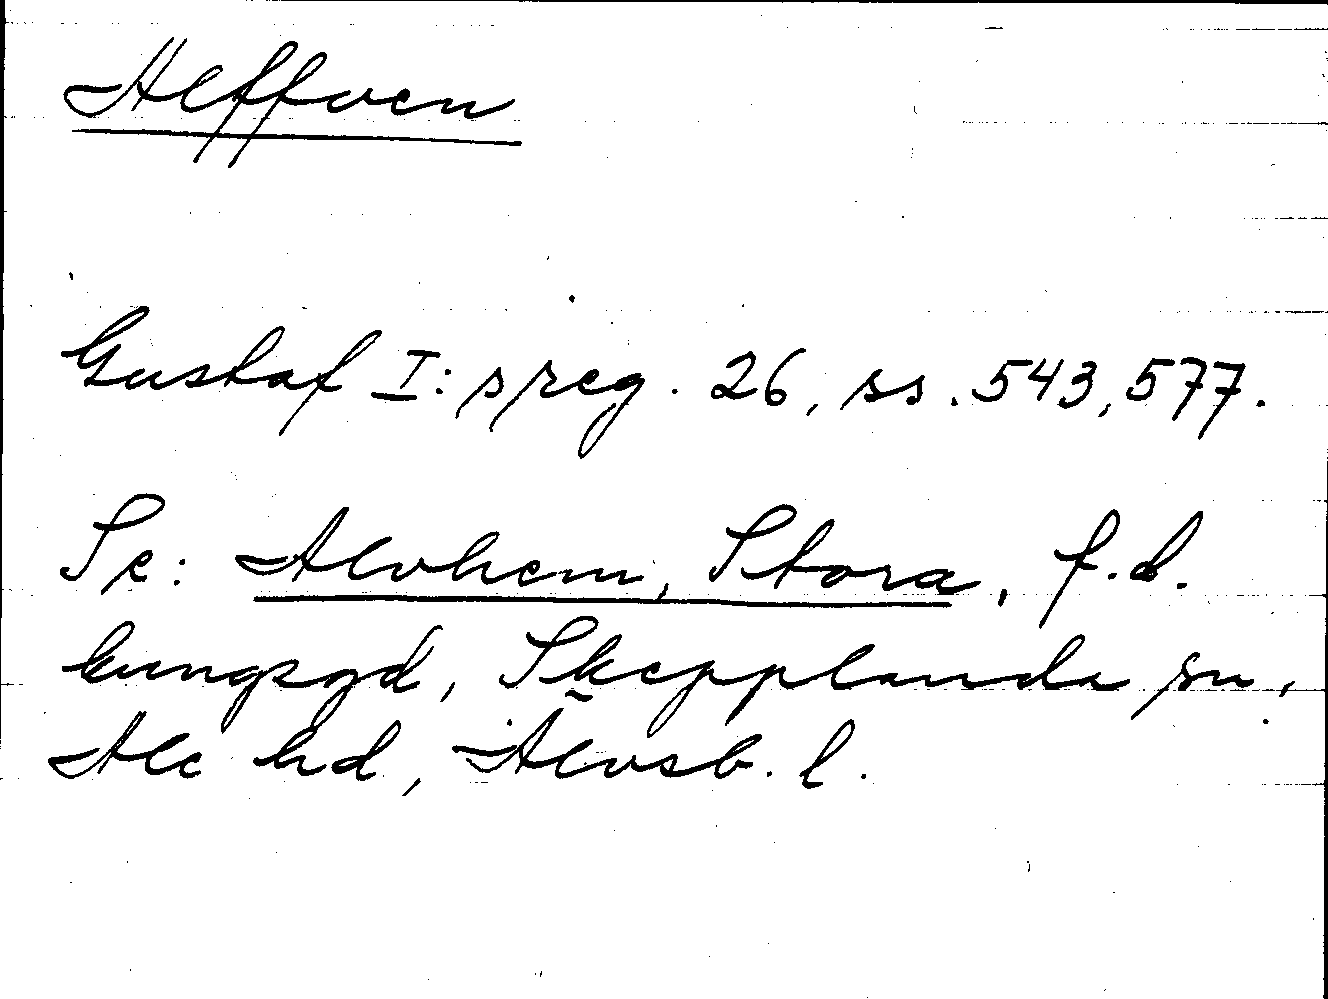 Alffven
Gustaf I: s reg. 26, ss. 543, 577.
Se: Alvhem, Stora, f.d.
kungsgd, Skepplanda sn,
Ale hd, Älvsb. l.